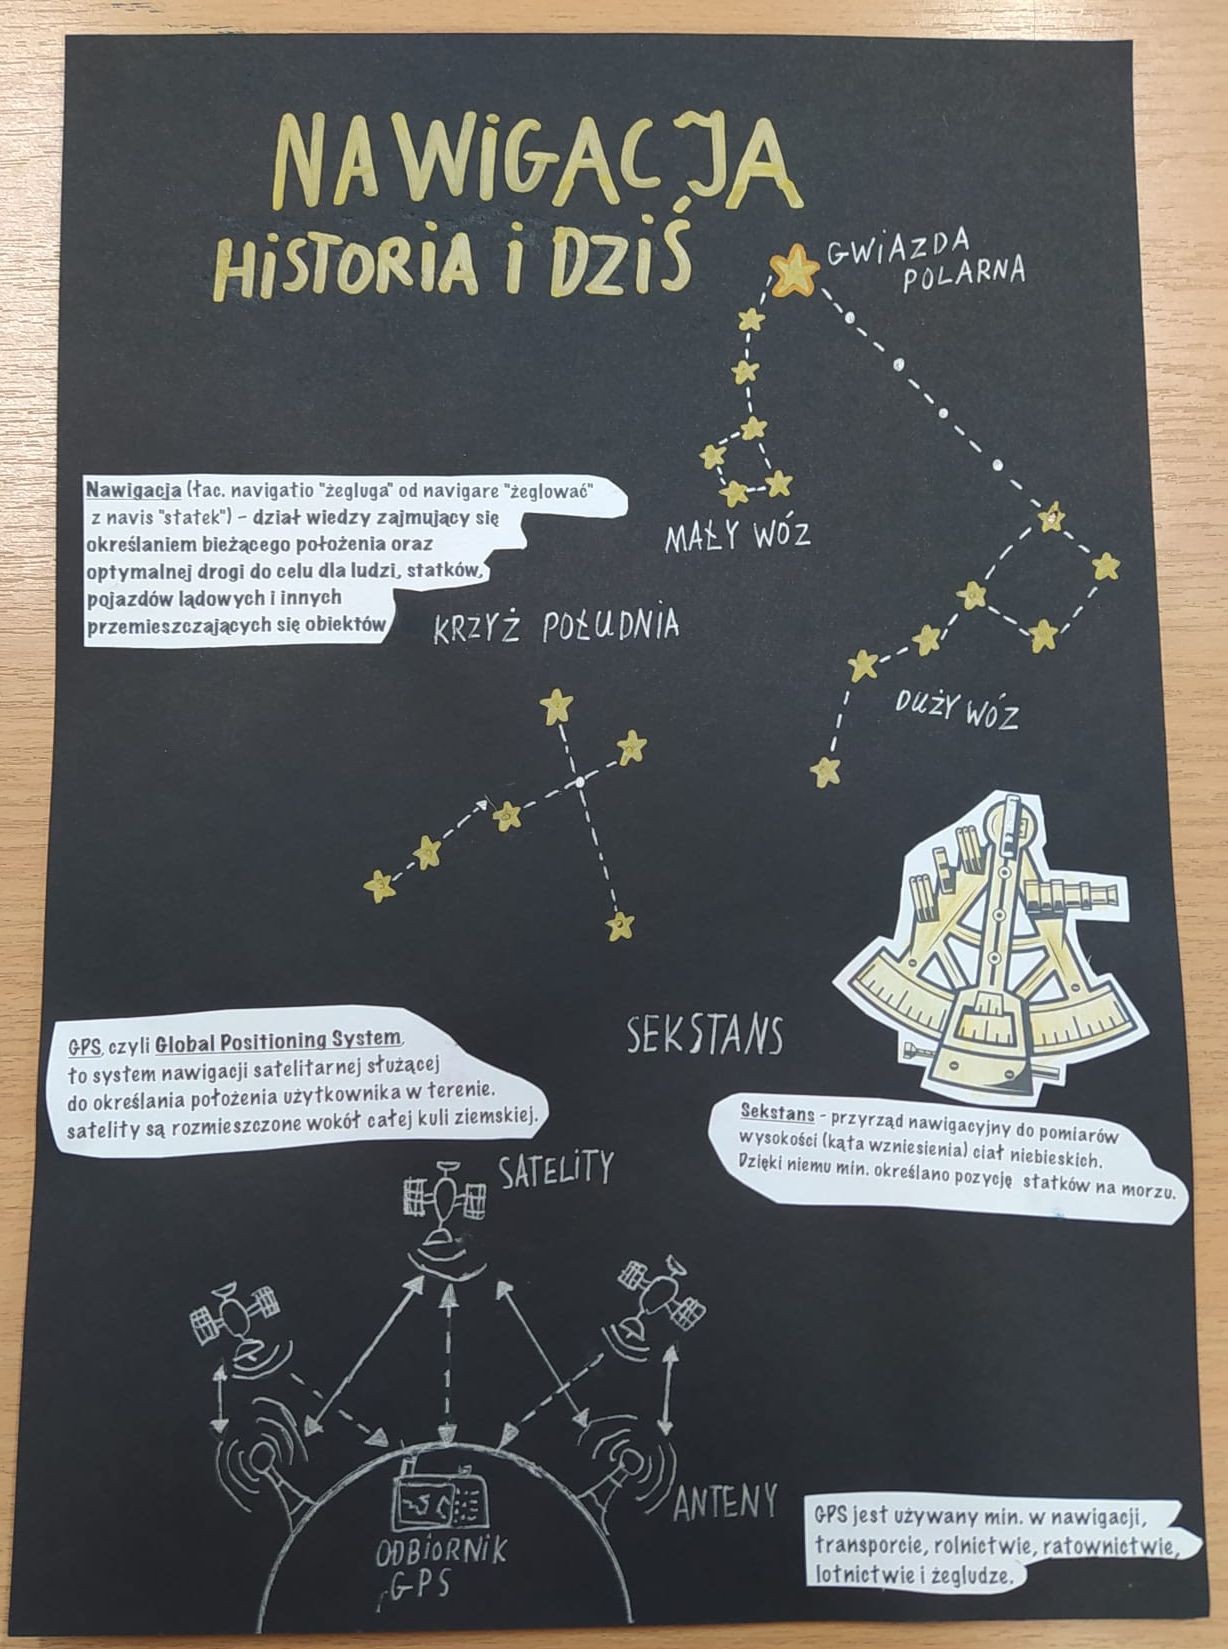 NAWiGACJA
HiSTORiA i DZiŚ
GWiAZDA
POLARNA
MAŁY WÓZ
Nawigacja (łac. navigatio "żegluga" od navigare "żeglować"
z navis "statek") - dział wiedzy zajmujący się
określaniem bieżącego położenia oraz
optymalnej drogi do celu dla ludzi, statków,
pojazdów lądowych i innych
przemieszczających się obiektów
KRZYŻ POŁUDNiA
DUŻY WÓZ
SEKSTANS
GPS, czyli Global Positioning System,
to system nawigacji satelitarnej służącej
do określania położenia użytkownika w terenie.
satelity są rozmieszczone wokół całej kuli ziemskiej.
Sekstans - przyrząd nawigacyjny do pomiarów
wysokości (kąta wzniesienia) ciał niebieskich.
Dzięki niemu min. określano pozycję statków na morzu.
SATELiTY
ANTENY
ODBiORNiK
GPS
GPS jest używany min. w nawigacji,
transporcie, rolnictwie, ratownictwie,
lotnictwie i żegludze.